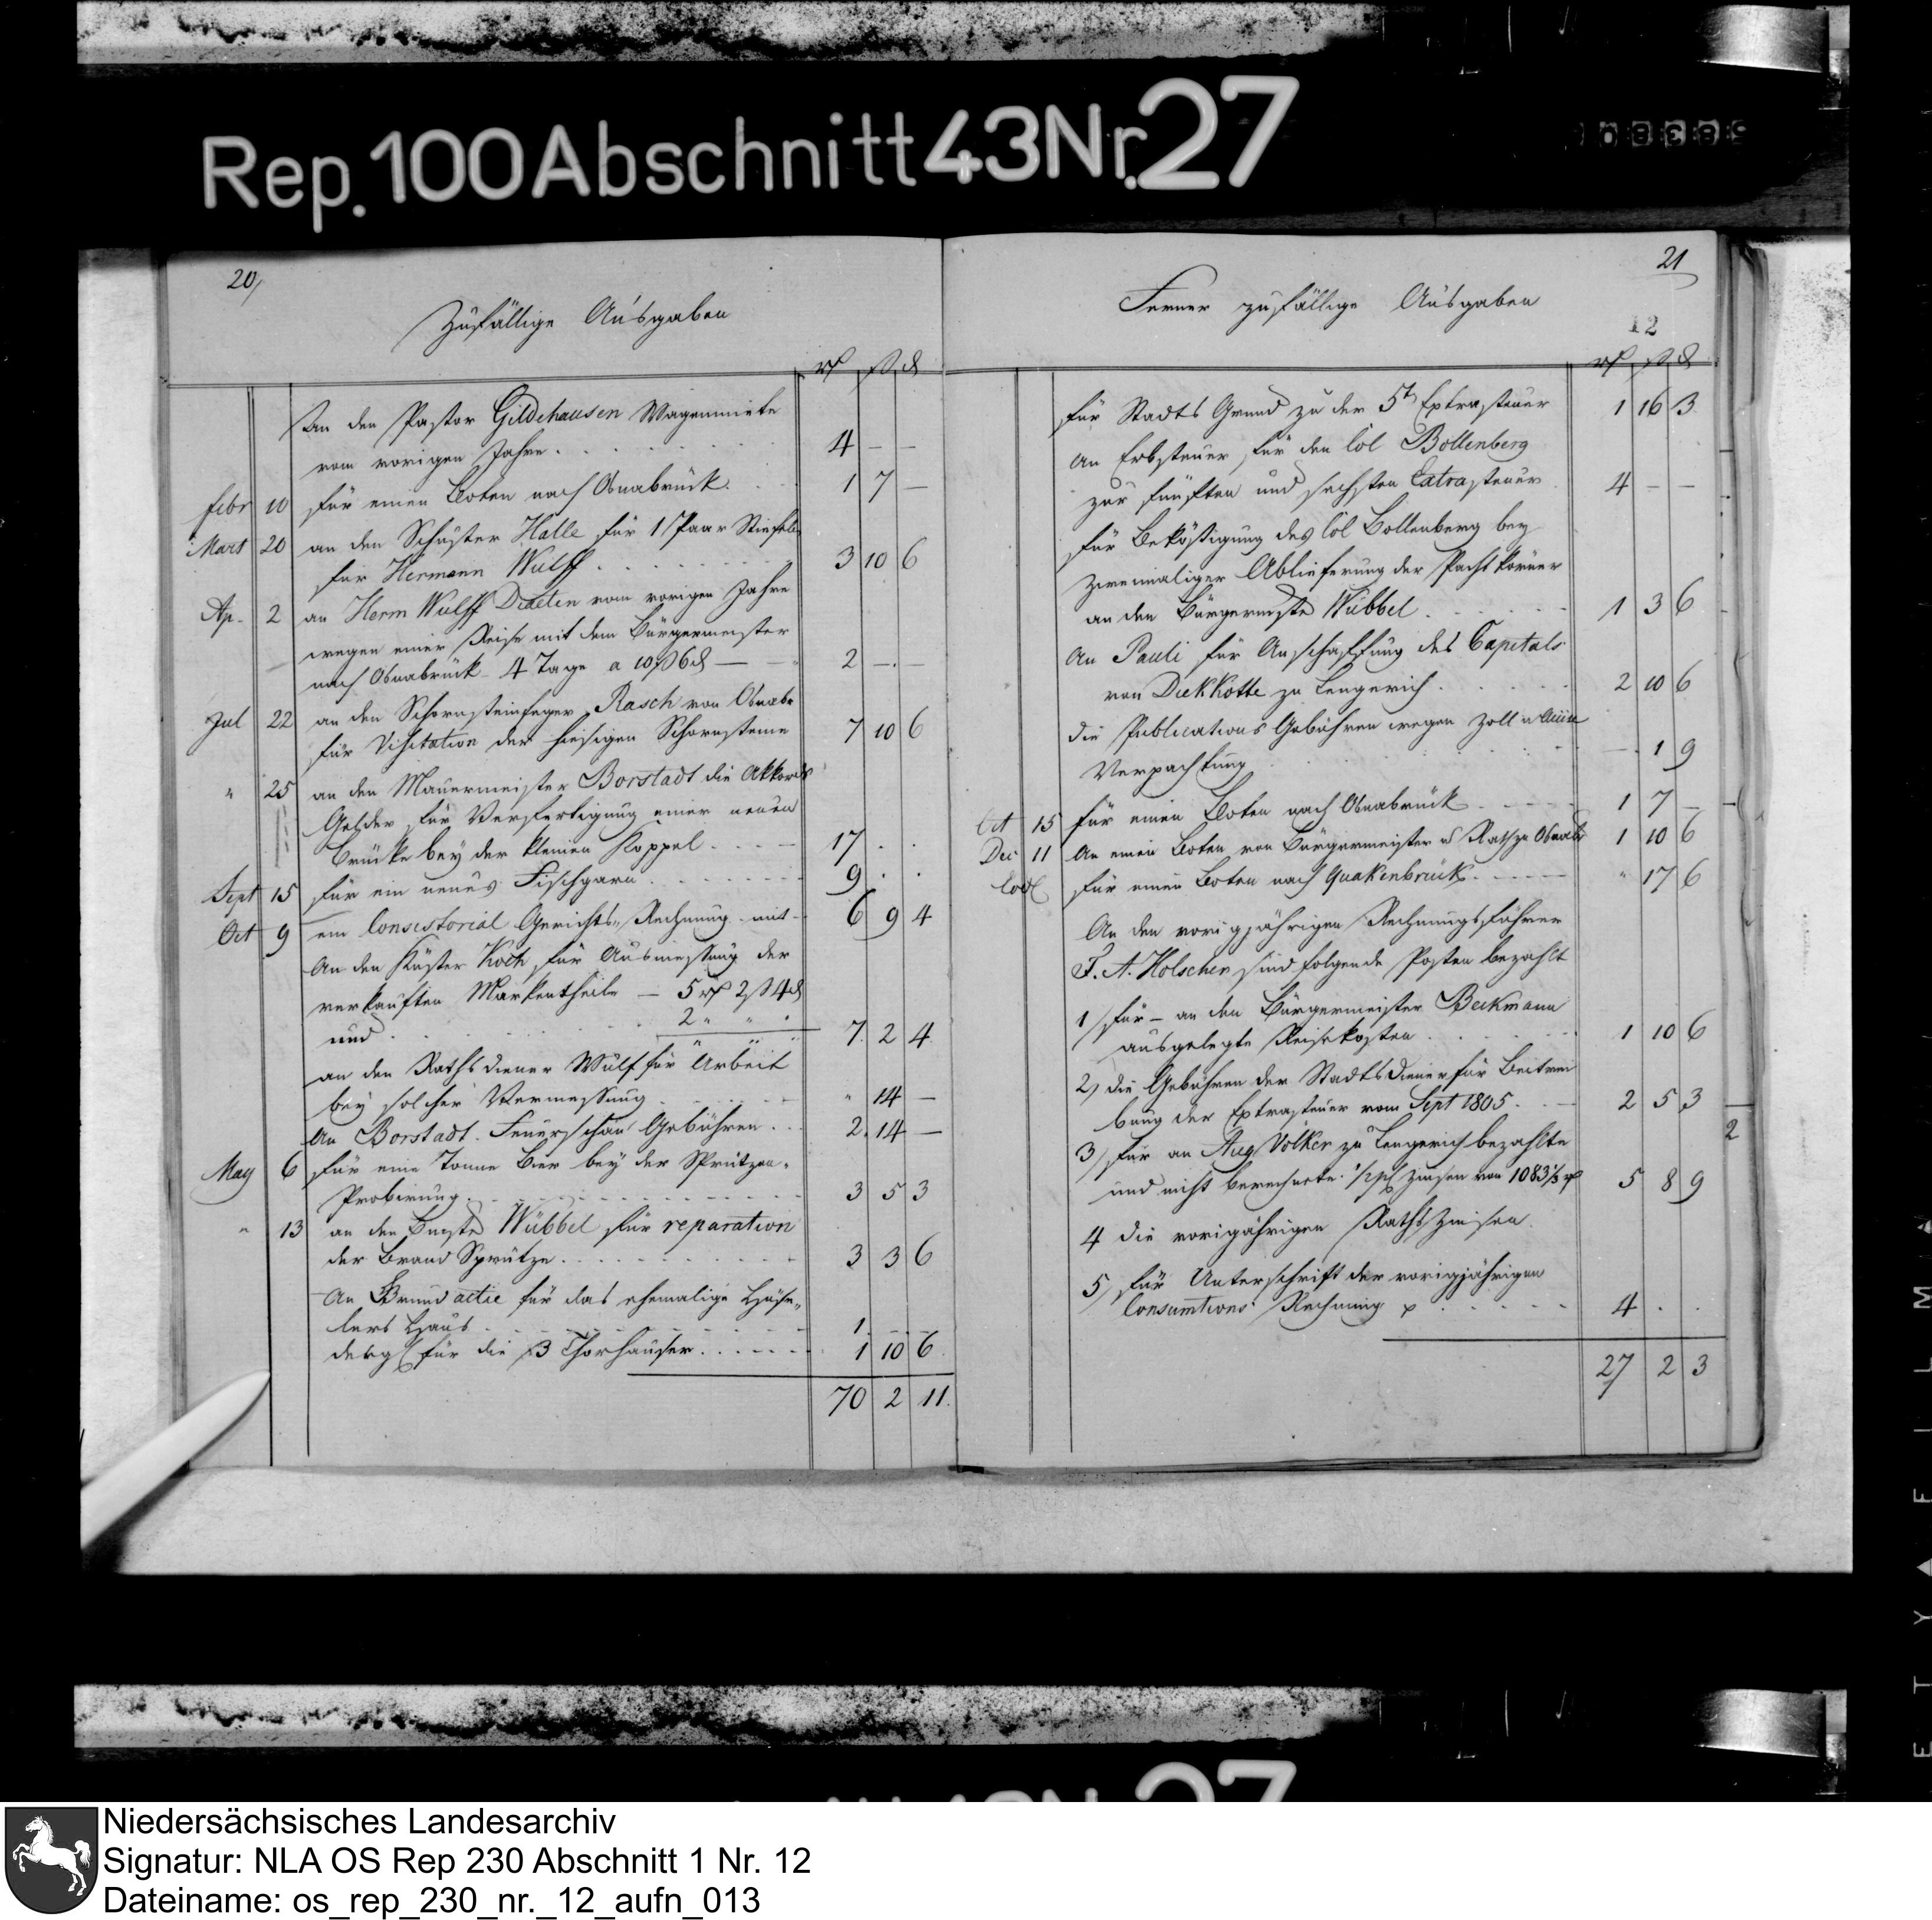 Rep. 100 Abschnitt 43 Nr. 27
20,
Zufällige Ausgaben
An den Pastor Gildehausen Wagenmiete
vom vorigen Jahre 4 — —
Febr 10 für einen Boten nach Osnabrück 1 7 —
Mart 20 an den Schuster Halle für 1 Paar Stiefeln
für Hermann Wulff 3 10 6
Ap. 2 an Herm Wulff Diaeten vom vorigen Jahre
wegen einer Reise mit dem Bürgermeister
nach Osnabrück 4 Tage a 10 ß 6 d — 2 — —
Jul 22 an den Schornsteinfeger Rasch von Osnabr
für Visitation der hiesigen Schornsteine 7 10 6
" 25 an den Mauermeister Borstadt die Akkords
Gelder für Verfertigung einer neuen
Brücke bey der kleinen Koppel 17 . .
Sept 15 für ein neues Fischgarn 9 . .
Oct 9 ein Consistorial Gerichts Rechnung mit 6 9 4
An den Küster Koch für Ausmessung der
verkauften Markentheile — 5 rt 2 ß 4 d
und 2 " " 7 2 4
an den Rathsdiener Wulf für Arbeit
bey solcher Vermessung " 14 —
An Borstadt Feuerschau Gebühren 2 14 —
May 6 für eine Tonne Bier bey der Sprützen-
Probirung 3 5 3
" 13 an den Wübbel für reparation
der Brand Sprütze 3 3 6
An Brand actie für das ehemalige
Haus 1 — —
dergl für die 3 Thorhäuser 1 10 6
70 2 11
21
Ferner zufällige Ausgaben
12
für Stadts Grund zu der 5t Extrasteuer 1 16 3
An Erbsteuer für den Col Bollenberg
zur fünften und sechsten Extrasteuer 4 — —
für Beköstigung des Col Bollenberg bey
zweimaliger Ablieferung der Pachtkörner
an den Bürgermstr Wübbel 1 3 6
An Pauli für Anschaffung des Capitals
von Diekkotte zu Lengerich 2 10 6
die Publications Gebühren wegen Zoll u
Verpachtung — 1 9
Oct 15 für einen Boten nach Osnabrück 1 7 —
Dec 11 An einen Boten von Bürgermeister u Rath zu Osnabr 1 10 6
eod für einen Boten nach Quakenbrück " 17 6
An den vorigjährigen Rechnungsführer
F. A. Holscher sind folgende Posten bezahlt
1) für — an den Bürgermeister Beckmann
ausgelegte Reisekosten 1 10 6
2) die Gebühren der Stadtsdiener für Beitrei
bung der Extrasteuer vom Sept 1805. 2 5 3
3) für an Aug Völker zu Lengerich bezahlte
und nicht berechnete 1/2 Zinsen von 1083 1/3 rt 5 8 9
4 die vorigjährigen Raths Zinsen
5 für Unterschrift der vorigjährigen
Consumtions Rechnung 4 . .
27 2 3
2
Niedersächsisches Landesarchiv
Signatur: NLA OS Rep 230 Abschnitt 1 Nr. 12
Dateiname: os_rep_230_nr._12_aufn_013